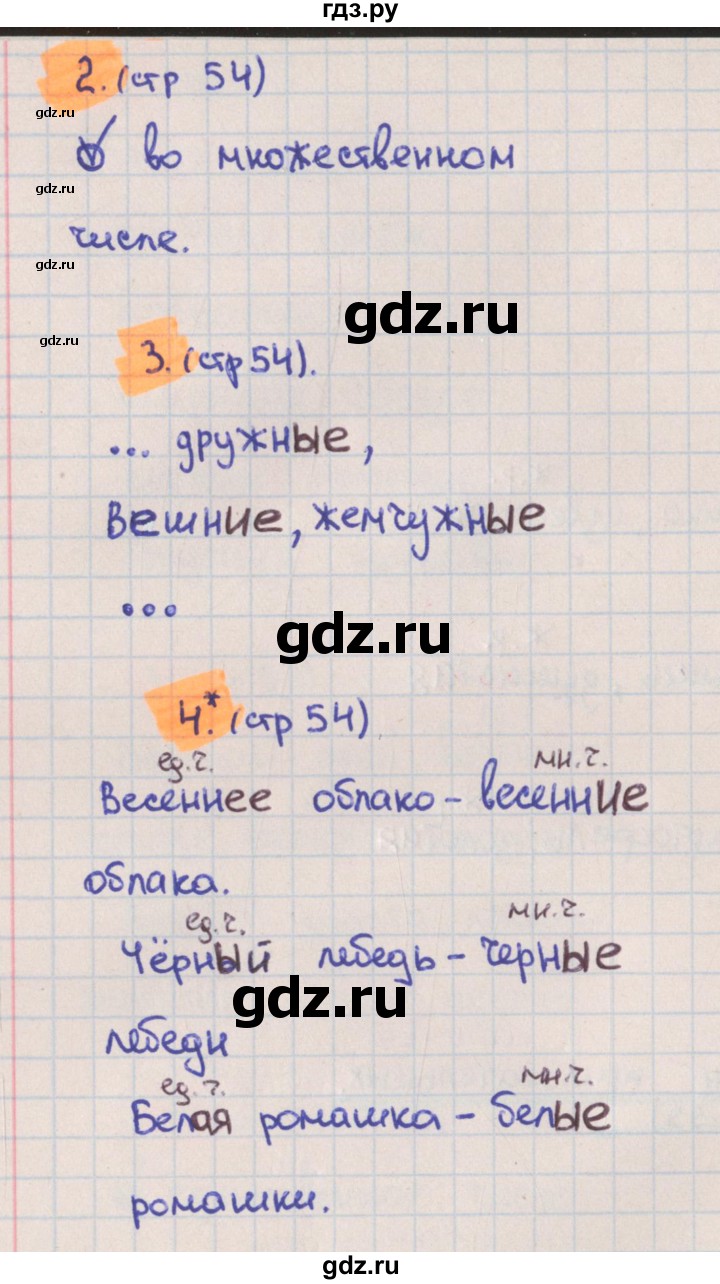 гдз.ру
2. (стр 54)
gdz.ru
во множественном
gdz.ru
числе.
gdz.ru
gdz.ru
gdz.ru
3. (стр 54).
... дружные,
Вешние, жемчужные
...
gdz.ru
4.* (стр 54)
ед.ч. мн.ч.
Весеннее облако – весенние
облака.
ед.ч. мн.ч.
Чёрный лебедь – черные
gdz.ru
лебеди
ед.ч. мн.ч.
Белая ромашка – белые
ромашки.
gdz.ru